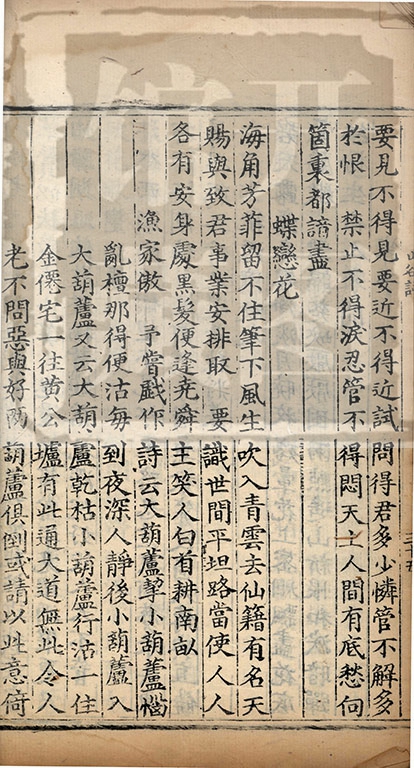 要見不得見要近不得近試問得君多少憐管不解多
於恨 禁止不得淚忍管不得悶天上人間有底愁向
箇裏都諳盡
蝶戀花
海角芳菲留不住筆下風生吹入青雲去仙籍有名天
賜與致君事業安排取 要識世間平坦路當使人人
各有安身處黑髮便逢堯舜主笑人白首耕南畝
漁家傲 予嘗戲作詩云大葫蘆挈小葫蘆惱
亂檀那得便沽每到夜深人靜後小葫蘆入
大葫蘆又云大葫蘆乾枯小葫蘆行沽一住
金僊宅一往黄公壚有此通大道無此令人
老不問惡與好兩葫蘆俱倒或請以此意倚